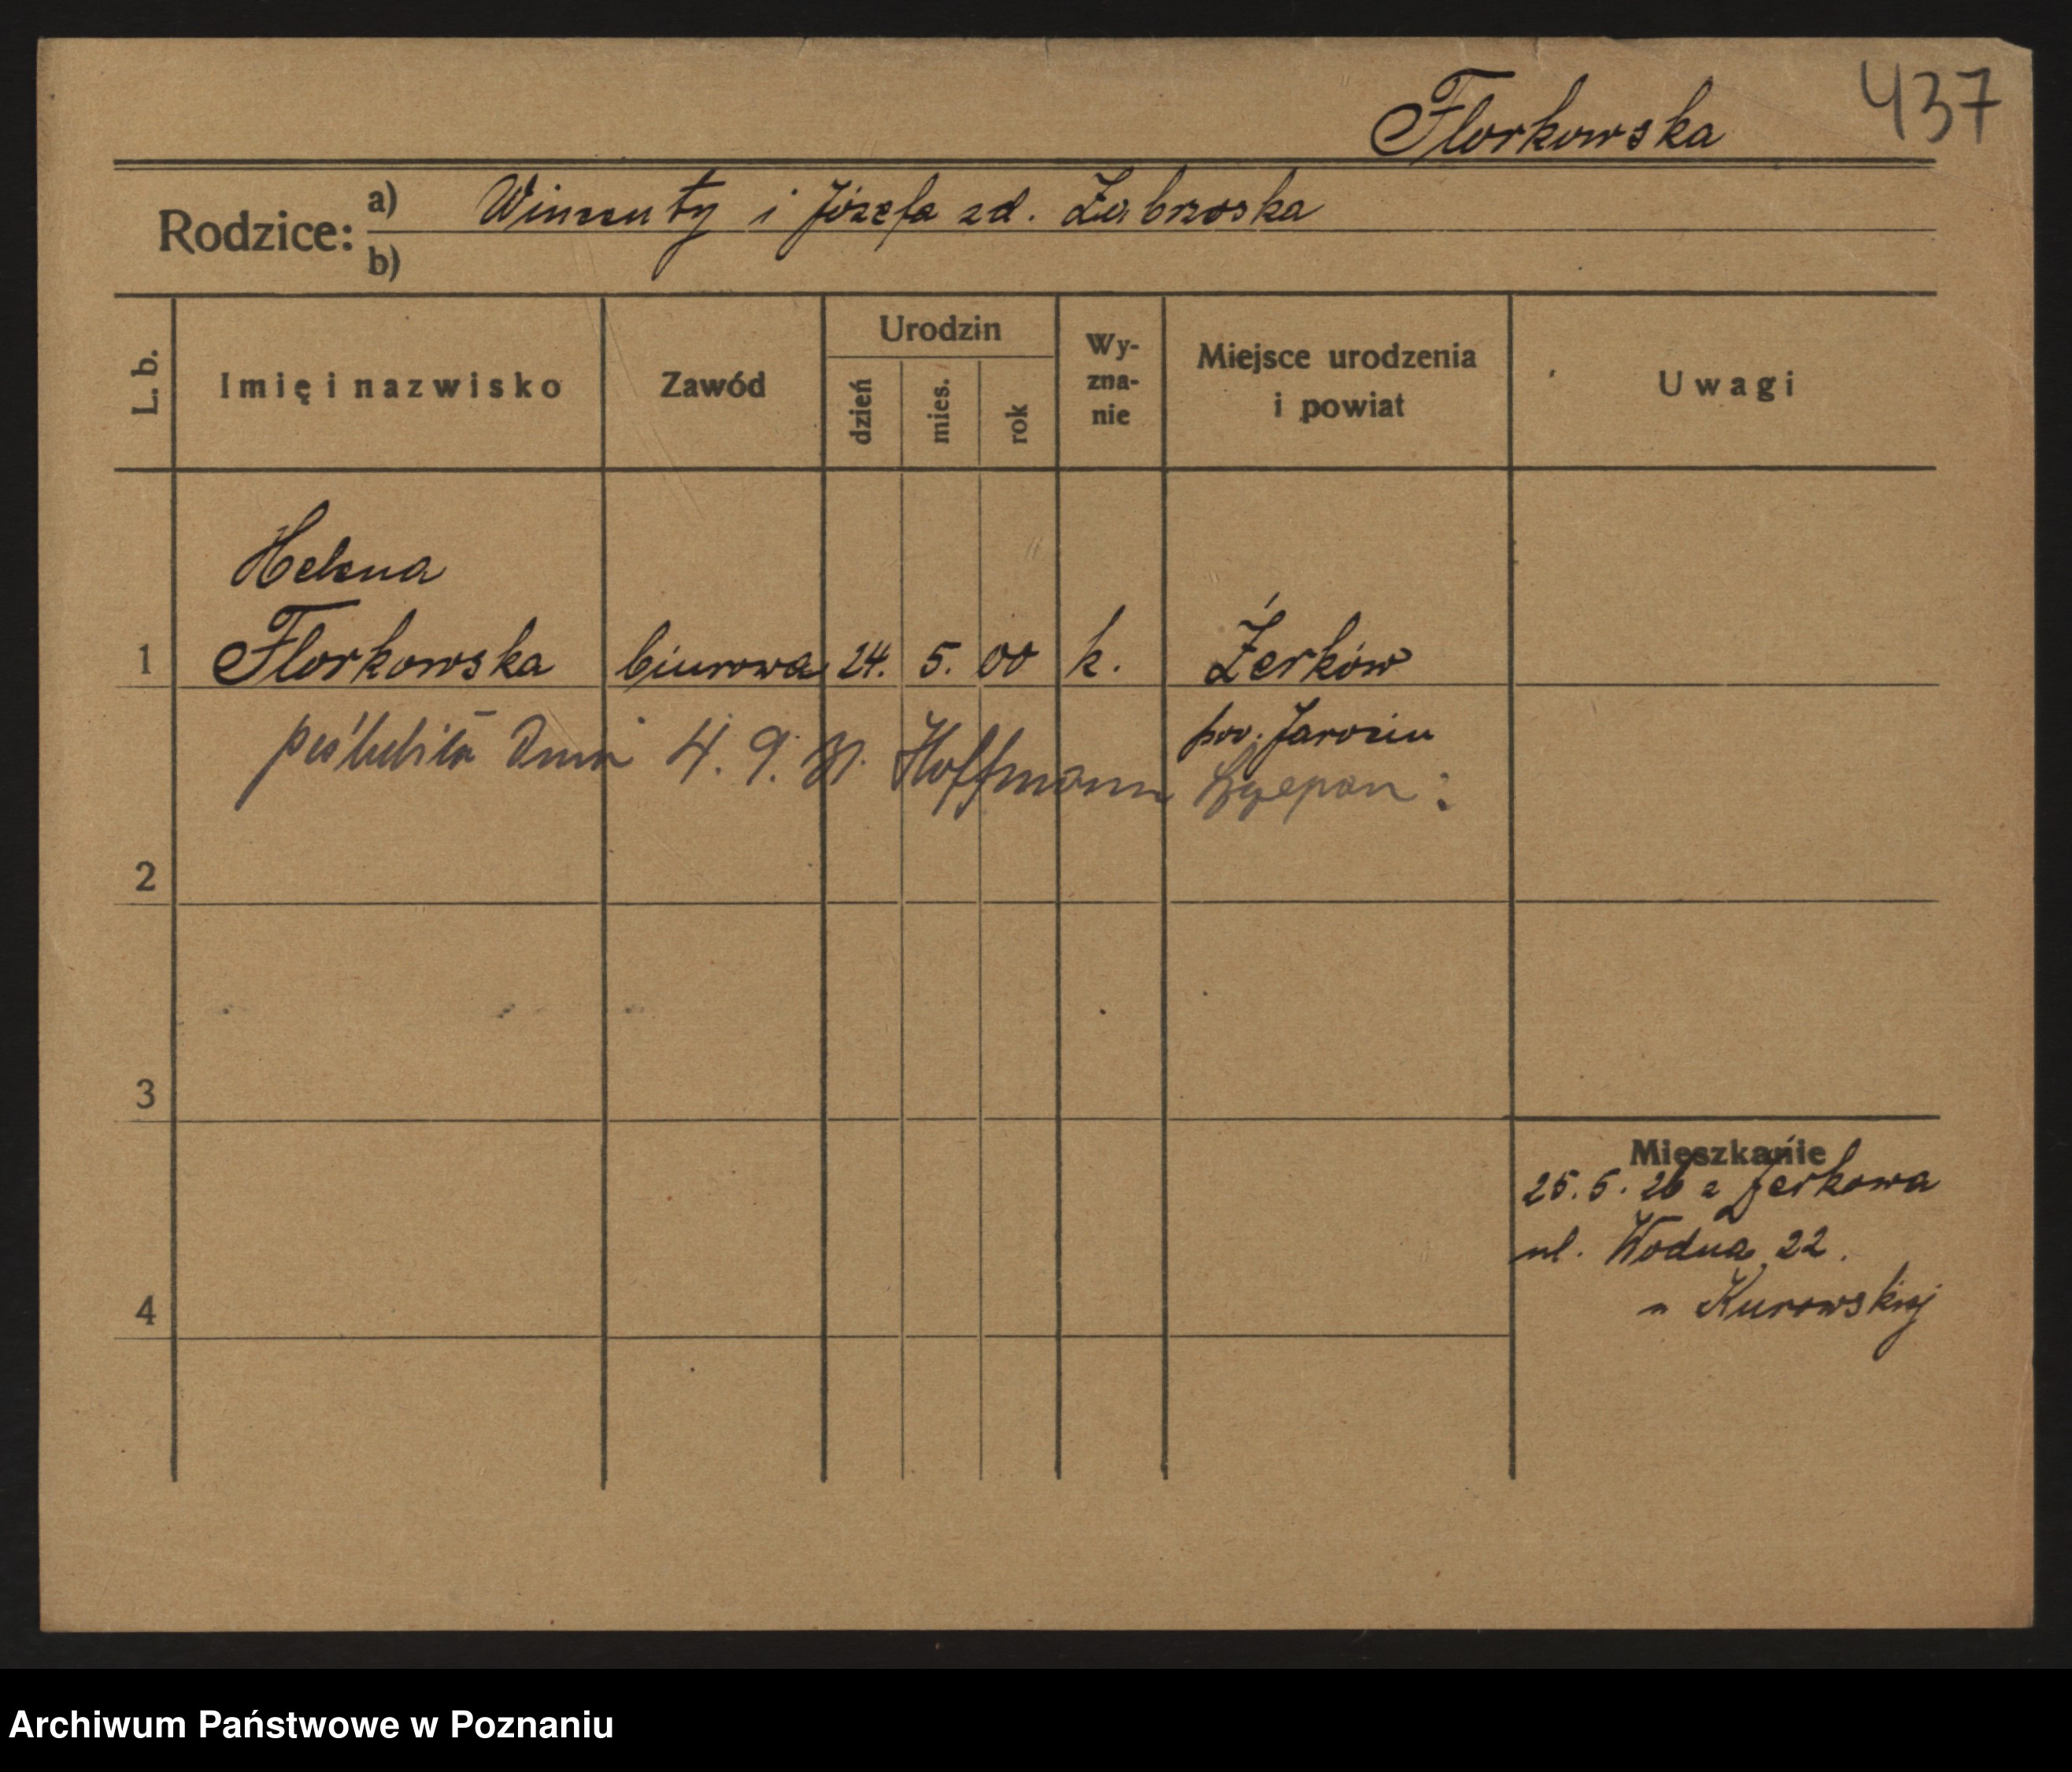 437
Florkowska
Rodzice: a) Wincenty i Józefa zd. Zabrzoska
b)
L. b. Imię i nazwisko Zawód Urodzin dzień mies. rok Wyznanie Miejsce urodzenia i powiat Uwagi
Helena
1 Florkowska biurowa 24. 5. 00 k. Żerków
pow. Jarocin
poślubiła dnia 4. 9. Hoffmann
2
3
Mieszkanie
25. 5. 26 z Żerkowa
ul. Wodna 22.
u Kurowskiej
4
Archiwum Państwowe w Poznaniu